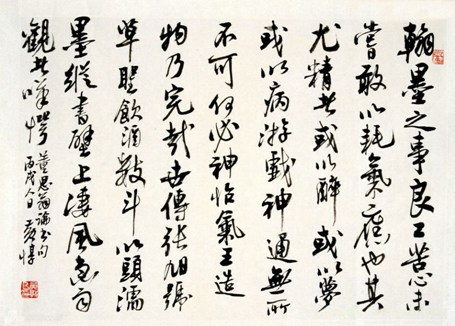 翰墨之事良工苦心未
嘗敢以耗氣應也其
尤精者或以醉或以夢
或以病游戲神通無所
不可何必神怡氣王造
物乃完哉世傳張旭號
草聖飲酒數斗以頭濡
墨縱書壁上凄風急雨
觀者嘆愕
董思翁論書句
丙戌